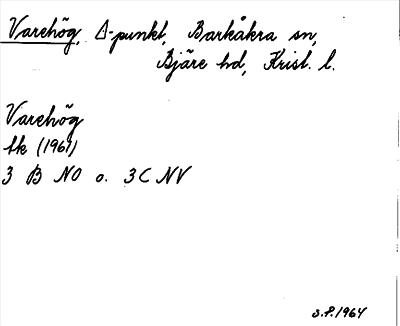 Varehög, Δ-punkt, Barkåkra sn,
Bjäre hd, Krist. l.
Varehög
tk (1961)
3 B NO o. 3C NV
S.P. 1964